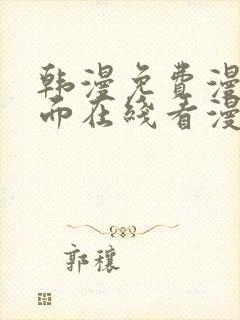 韩漫免费漫
而在线看漫
郭穰